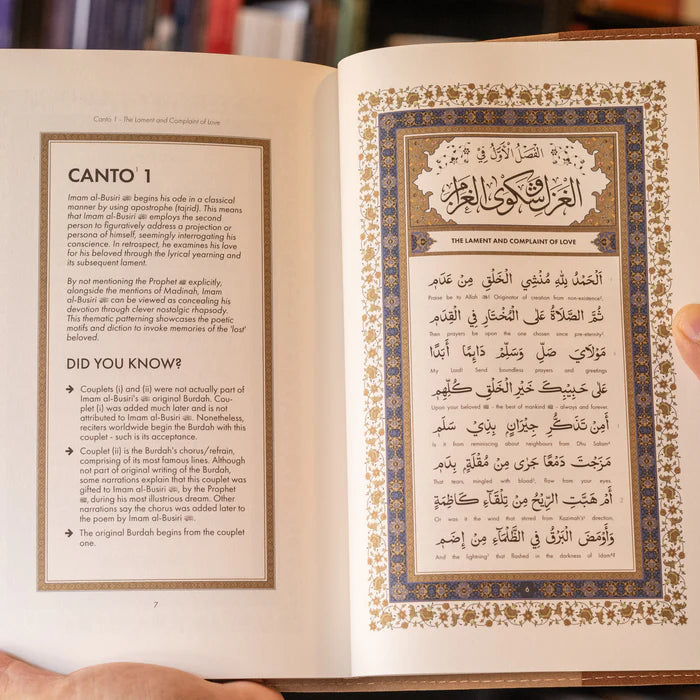 الفصل الأول في
الغزل وشكوى الغرام
THE LAMENT AND COMPLAINT OF LOVE
اَلْحَمْدُ لِلّٰهِ مُنْشِي الْخَلْقِ مِنْ عَدَمِ
Praise be to Allah ﷻ! Originator of creation from non-existence²,
ثُمَّ الصَّلَاةُ عَلَى الْمُخْتَارِ فِي الْقِدَمِ
Then prayers be upon the one chosen since pre-eternity³.
مَوْلَايَ صَلِّ وَسَلِّمْ دَايِمًا أَبَدًا
My Lord! Send boundless prayers and greetings
عَلَى حَبِيبِكَ خَيْرِ الْخَلْقِ كُلِّهِمِ
Upon your beloved ﷺ - the best of mankind ﷺ - always and forever.
أَمِنْ تَذَكُّرِ جِيْرَانٍ بِذِيْ سَلَمِ
Is it from reminiscing about neighbours from Dhu Salam⁴
مَزَجْتَ دَمْعًا جَرٰى مِنْ مُقْلَةٍ بِدَمِ
That tears, mingled with blood⁵, flow from your eyes.
أَمْ هَبَّتِ الرِّيْحُ مِنْ تِلْقَاءِ كَاظِمَةٍ 2
Or was it the wind that stirred from Kazimah's⁶ direction,
وَأَوْمَضَ الْبَرْقُ فِي الظَّلْمَاءِ مِنْ إِضَمِ
And the lightning⁷ that flashed in the darkness of Idam⁸?
6
Canto 1 - The Lament and Complaint of Love
CANTO¹ 1
Imam al-Busiri ﷺ begins his ode in a classical
manner by using apostrophe (tajrid). This means
that Imam al-Busiri ﷺ employs the second
person to figuratively address a projection or
persona of himself, seemingly interrogating his
conscience. In retrospect, he examines his love
for his beloved through the lyrical yearning and
its subsequent lament.
By not mentioning the Prophet ﷺ explicitly,
alongside the mentions of Madinah, Imam
al-Busiri ﷺ can be viewed as concealing his
devotion through clever nostalgic rhapsody.
This thematic patterning showcases the poetic
motifs and diction to invoke memories of the 'lost'
beloved.
DID YOU KNOW?
→ Couplets (i) and (ii) were not actually part of
Imam al-Busiri's ﷺ original Burdah. Cou-
plet (i) was added much later and is not
attributed to Imam al-Busiri ﷺ. Nonetheless,
reciters worldwide begin the Burdah with this
couplet - such is its acceptance.
→ Couplet (ii) is the Burdah's chorus/refrain,
comprising of its most famous lines. Although
not part of original writing of the Burdah,
some narrations explain that this couplet was
gifted to Imam al-Busiri ﷺ, by the Prophet
ﷺ, during his most illustrious dream. Other
narrations say the chorus was added later to
the poem by Imam al-Busiri ﷺ.
→ The original Burdah begins from the couplet
one.
7